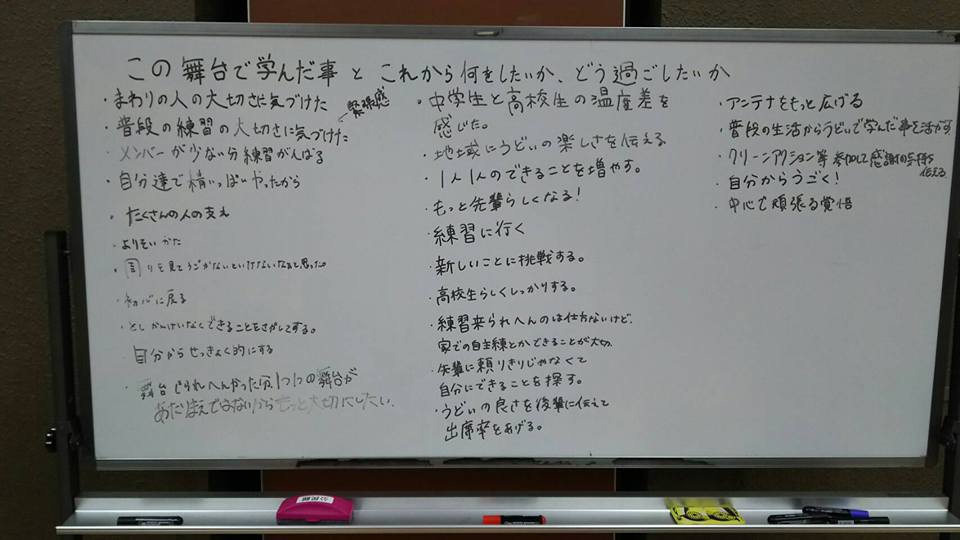 この舞台で学んだ事と これから何をしたいか、どう過ごしたいか
・まわりの人の大切さに気づけた
緊張感
・普段の練習の大切さに気づけた
・メンバーが少ない分練習がんばる
・自分達で精いっぱいやったから
・たくさんの人の支え
・よりそいかた
・周りを見てうごかないといけないなぁと思った。
・初心に戻る
・としかんけいなくできることをさがしてする。
・自分からせっきょく的にする
・舞台 でられへんかった分、1つ1つの舞台が
あたりまえではないからもっと大切にしたい。
・中学生と高校生の温度差を
感じた。
・地域にうどぃの楽しさを伝える
・1人1人のできることを増やす。
・もっと先輩らしくなる!
・練習に行く
・新しいことに挑戦する。
・高校生らしくしっかりする。
・練習来られへんのは仕方ないけど、
家での自主練とかできることが大切
・先輩に頼りきりじゃなくて
自分にできることを探す。
・うどぃの良さを後輩に伝えて
出席率をあげる。
・アンテナをもっと広げる
・普段の生活からうどぃで学んだ事を活かす
・クリーンアクション等 参加して感謝の気持ち
伝える
・自分からうごく!
・中心で頑張る覚悟